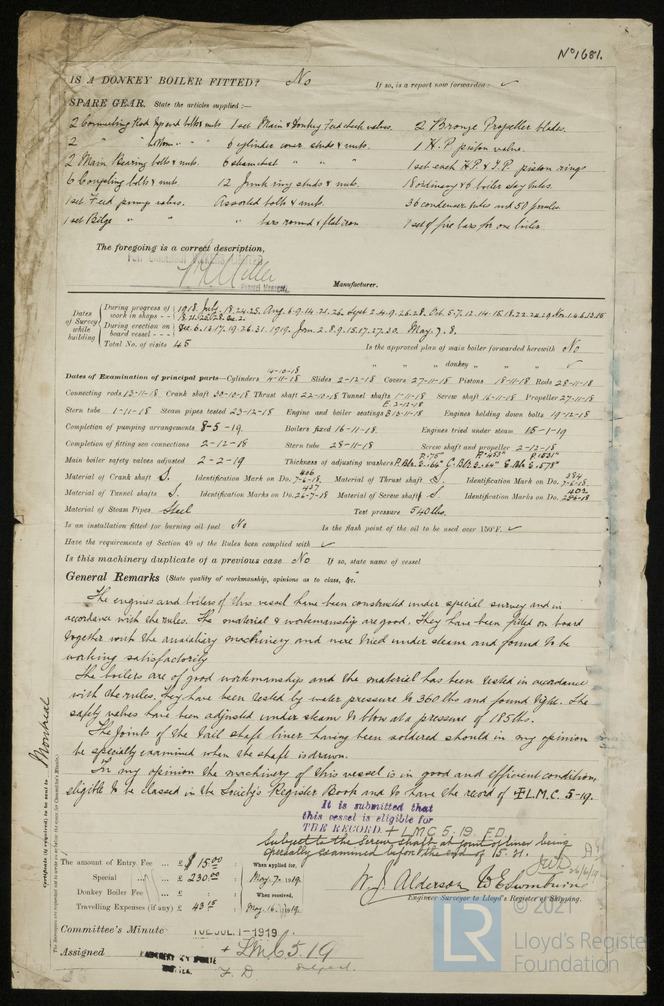 No 1681.
IS A DONKEY BOILER FITTED? No If so, is a report now forwarded: ✓
SPARE GEAR. State the articles supplied:—
2 Connecting Rod top end bolts & nuts. 1 set Main & Donkey Feed check valves. 2 Bronze Propeller blades.
2 " " bottom " " 6 cylinder cover studs & nuts. 1 H.P. piston valve.
2 Main Bearing bolts & nuts. 6 steamchest " " " 1 set each H.P. & I.P. piston rings
6 Coupling bolts & nuts. 12 Junk ring studs & nuts. 18 ordinary & 6 boiler stay tubes.
1 set Feed pump valves. Assorted bolts & nuts. 36 condenser tubes and 50 ferrules.
1 set Bilge " " " bars round & flat iron 1 set of fire bars for one boiler.
The foregoing is a correct description,
Manufacturer.
Dates of Survey while building
During progress of work in shops - - 1918. July. 18.24.25. Aug. 6.9.14.21.26. Sept. 2.4.9.26.28. Oct. 5.7.12.14.15.18.22.24.29. Nov. 1.4.6.13.15
18.21.25.28. Dec. 2.
During erection on board vessel - - - Dec. 6.13.17.19.26.31. 1919. Jan. 2.8.9.15.17.27.30. May. 7.8.
Total No. of visits 45 Is the approved plan of main boiler forwarded herewith No
" " " donkey " " " ✓
Dates of Examination of principal parts—Cylinders 14-10-18 14-11-18 Slides 2-12-18 Covers 27-11-18 Pistons 18-11-18 Rods 28-11-18
Connecting rods 13-11-18 Crank shaft 30-10-18 Thrust shaft 22-10-18 Tunnel shafts 1-11-18 Screw shaft 16-11-18 Propeller 27-11-18
Stern tube 1-11-18 Steam pipes tested 23-12-18 Engine and boiler seatings E. 2-12-18 B 13-11-18 Engines holding down bolts 19-12-18
Completion of pumping arrangements 8-5-19. Boilers fixed 16-11-18. Engines tried under steam 15-1-19
Completion of fitting sea connections 2-12-18 Stern tube 28-11-18 Screw shaft and propeller 2-12-18
Main boiler safety valves adjusted 2-2-19 Thickness of adjusting washers
Material of Crank shaft S. Identification Mark on Do. 406 7-6-18. Material of Thrust shaft S. Identification Mark on Do. 384 7-6-18.
Material of Tunnel shafts S. Identification Marks on Do. 437 26-7-18 Material of Screw shafts S Identification Marks on Do. 402
Material of Steam Pipes Steel Test pressure 540 lbs.
Is an installation fitted for burning oil fuel No Is the flash point of the oil to be used over 150°F. ✓
Have the requirements of Section 49 of the Rules been complied with ✓
Is this machinery duplicate of a previous case No If so, state name of vessel
General Remarks (State quality of workmanship, opinions as to class, &c.
The engines and boilers of this vessel have been constructed under special survey and in
accordance with the rules. The material & workmanship are good. They have been fitted on board
together with the auxiliary machinery and were tried under steam and found to be
working satisfactorily
The boilers are of good workmanship and the material has been tested in accordance
with the rules. They have been tested by water pressure to 360 lbs and found tight. The
safety valves have been adjusted under steam to blow at a pressure of 185 lbs.
The joints of the tail shaft liner having been soldered should in my opinion
be specially examined when the shaft is drawn.
In my opinion the machinery of this vessel is in good and efficient condition
eligible to be classed in the Society's Register Book and to have the record of +L.M.C. 5-19.
It is submitted that
this vessel is eligible for
THE RECORD. + LMC 5.19. F.D.
Subject to the screw shaft at joint of liner being
specially examined before the end of
Montreal
The amount of Entry Fee ... £ $ 15.00 When applied for,
Special ... £ 230.00 May. 7. 1919.
Donkey Boiler Fee ... £ : : When received,
Travelling Expenses (if any) £ 43.15 May. 16. 1919.
W. J. Alderson
Engineer Surveyor to Lloyd's Register of Shipping.
Committee's Minute TUE. JUL. 1-1919
Assigned + LMC 5.19
F.D
© 2021
LR
Lloyd's Register
Foundation